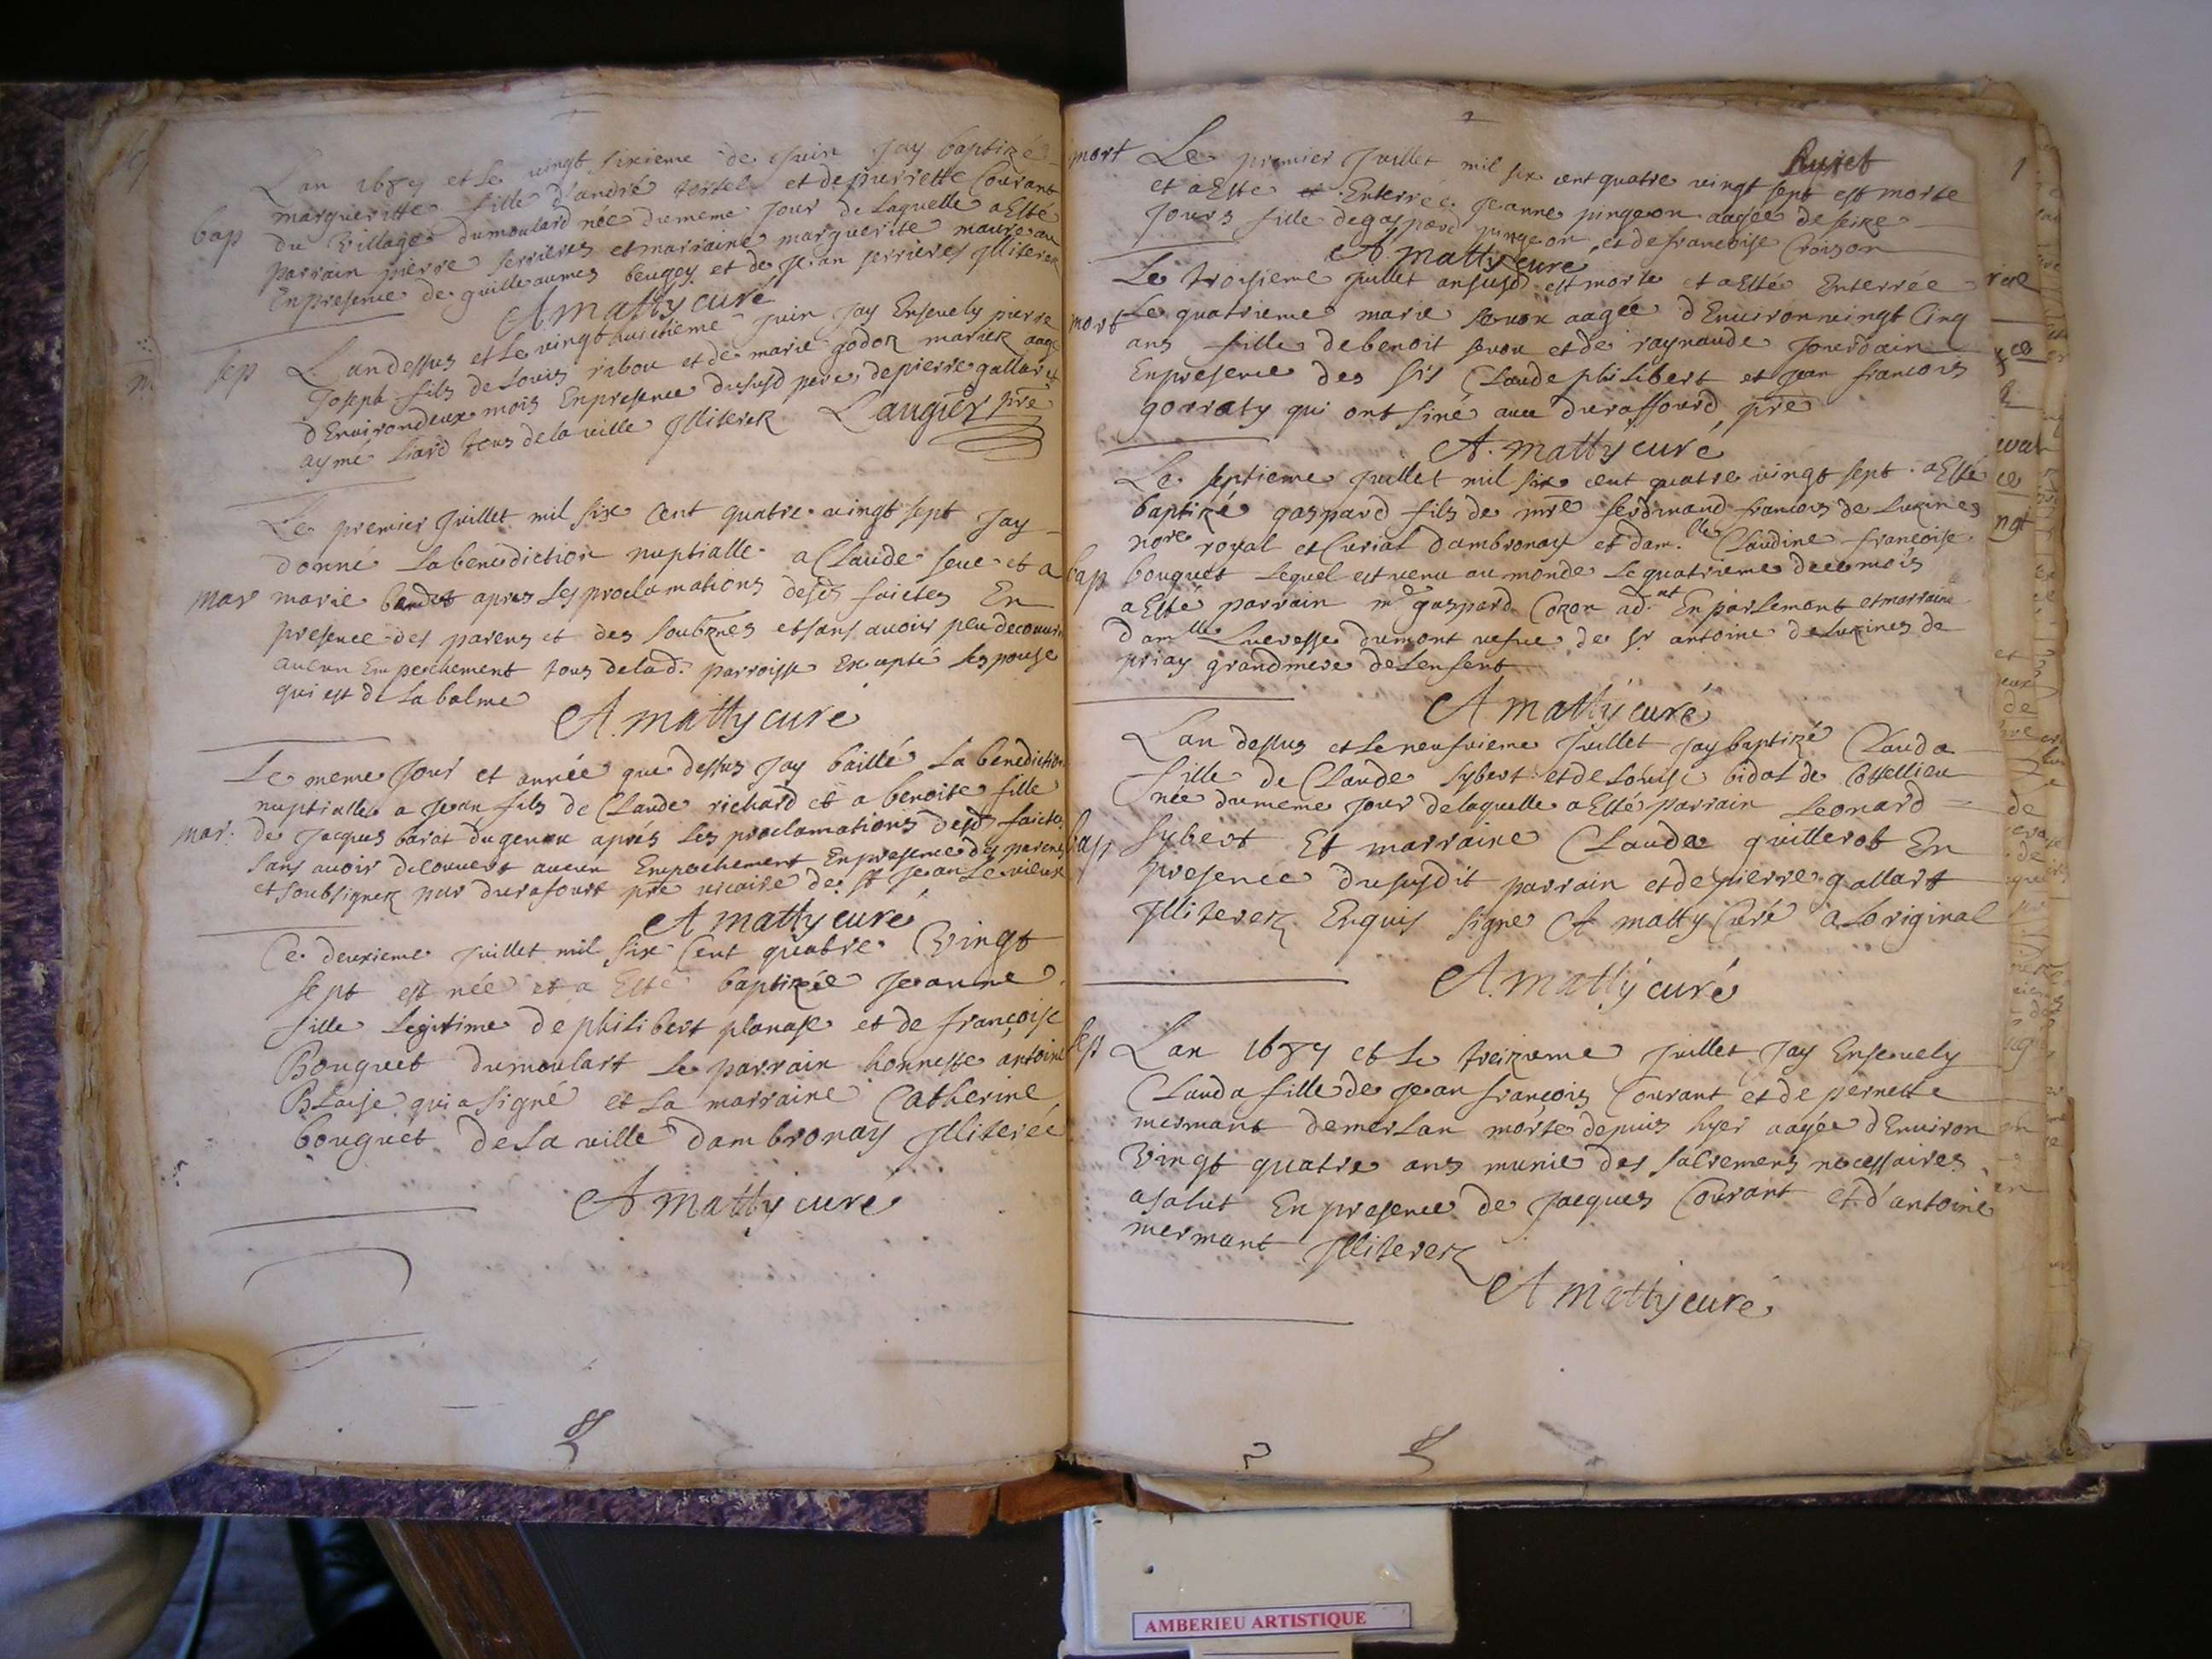 Lan 1687 et le vingt sixieme de Juin Jay baptizé
margueritte fille d'andré tortel et de pierrette Courant
bap du Village dumoulard née dumeme Jour de Laquelle a Esté
parrain pierre serrieres et marraine marguerite
En presence de guilleaumes beugey et de Jean serrieres Jlliterez
A matty curé
sep Lan dessus et Le vingt huictieme Juin Jay Ensevely pierre
Joseph fils de Louis ribou et de marie godoz mariez aagé
d Environ deux mois En presence dususd pere, de pierre gallart et
aymé Liard tous de la ville Jlliterez Laugier pre
Le premier Juillet mil six Cent quatre vingt sept Jay
donné La benediction nuptialle a Claude seve et a
mar marie apres Les proclamations desd faictes En
presence des parens et des soubznés et sans avoir peu decouvri
aucun Empechement tous delad. parroisse Excepté Lespouse
qui est de La balme
A. matty curé
Le meme Jour et année que dessus Jay baillé La benediction
nuptialle a Jean fils de Claude richard et a benoite fille
mar. de Jacques barat du genou aprés Les proclamations desd faictes
sans avoir decouvert aucun Empechement En presence des parens
et soubsignez par durafourt pre vicaire de St Jean Le vieux
A matty curé
Ce deuxieme Juillet mil six Cent quatre Vingt
sept est née et a Esté baptizée Jeanne
fille Legitime de philibert planase et de françoise
Bouquet dumoulart Le parrain honneste antoine
Blaise qui a signé et La marraine Catherine
bouquet de La ville dambronay Jlliterée
A matty curé
mort Le premier Juillet mil six cent quatre vingt sept est morte
et a Esté et Enterrée Jeanne pingeon aagée de seize
Jours fille de gaspard pingeon et de francoise Croison
A. matty curé
Le troisieme Juillet an susd est morte et a Esté Enterrée
mort Le quatrieme marie sevoz aagée d Environ vingt Cinq
ans fille de benoit sevoz et de raynaude Jourdain
En presence des srs Claude philibert et Jean francois
gorraty qui ont siné avec duraffourd pre
A. matty curé
Le septieme Juillet mil six cent quatre vingt sept a Esté
baptizé gaspard fils de mre ferdinand francois de Luzines
nore royal et Curial dambronay et dam.lle Claudine françoise
bap bouquet Lequel est venu au monde Le quatrieme de ce mois
a Esté parrain me gaspard Cozon ad.at En parlement et marraine
damlle Lucresse dumont vefve de sr antoine de Luzines de
priay grandmere de Lenfent
A matty curé
Lan dessus et Le neufvieme Juillet Jay baptizé Clauda
fille de Claude sybert et de Louise bidal de Cossellieu
née dumeme Jour de laquelle a Esté parrain Leonard =
bap Sybert Et marraine Clauda guillerot En
presence dususdit parrain et de pierre gallart
Jlliterez Enquis signe A matty Curé a Loriginal
A. matty curé
sep Lan 1687 et Le treizieme Juillet Jay Ensevely
Clauda fille de Jean françois Courant et de pernette
mermant demerlan morte depuis hyer aagée d Environ
Vingt quatre ans munie des sacremens necessaires
a salut En presence de Jacques Courant et d'antoine
mermant Jlliterez
A matty curé
AMBERIEU ARTISTIQUE